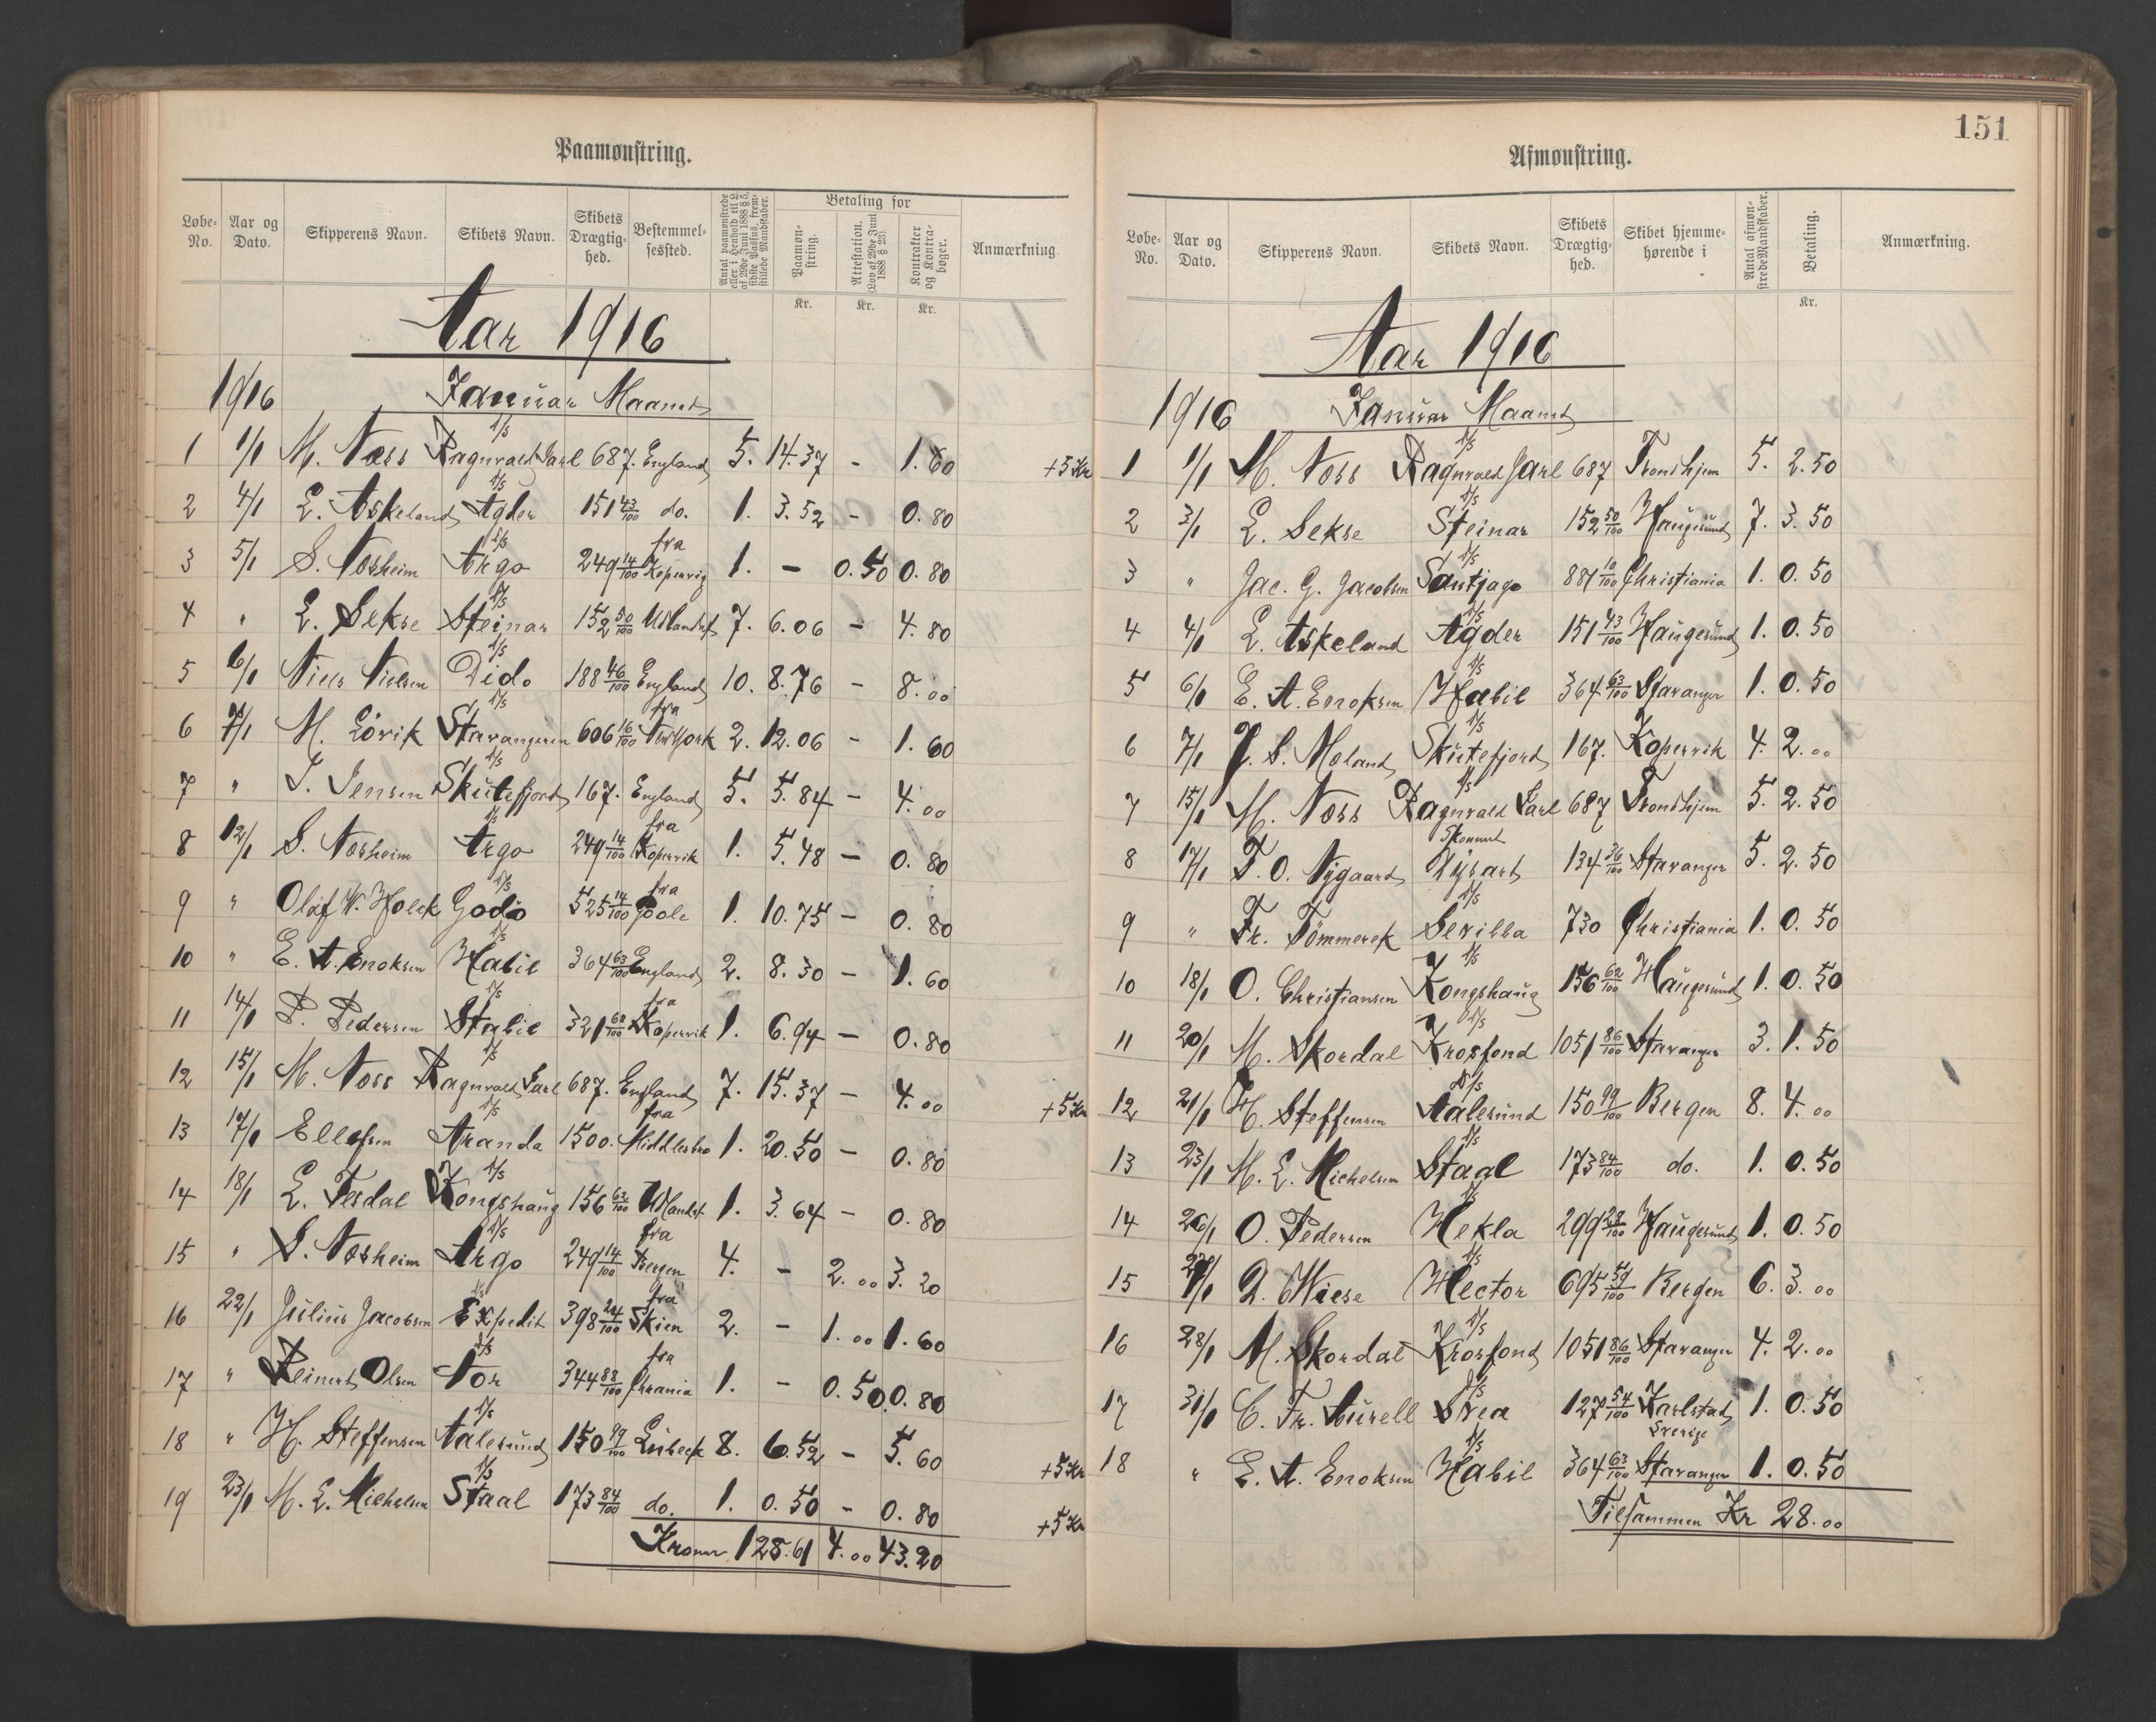 151
Paamønstring.
Løbe-No. Aar og Dato. Skipperens Navn. Skibets Navn. Skibets Drægtighed. Bestemmelsessted. Antal paamønstrede eller i Henhold til L. af 29de Juni 1888 § 5, sidste Passus, fremstillede Mandskaber. Betaling for Paamønstring. Attestation. (Lov af 29de Juni 1888 § 23). Kontrakter og Kontrabøger. Anmærkning.
Kr. Kr. Kr.
Aar 1916
1916 Januar Maaned
1 1/1 M. Næss S/S Ragnvald Jarl 687. England 5. 14.37 - 1.60 +5 Kr
2 4/1 L. Askeland S/S Agder 151 43/100 do. 1. 3.52 - 0.80
3 5/1 S. Nosheim S/S Argo 249 14/100 fra Kopervig 1. - 0.50 0.80
4 " L. Sekse S/S Steinar 152 50/100 Udlandet 7. 6.06 - 4.80
5 6/1 Niels Nielsen S/S Dido 188 46/100 England 10. 8.76 - 8.00
6 7/1 M. Lövik S/S Stavangeren 606 16/100 fra NewYork 2. 12.06 - 1.60
7 " J. Jensen S/S Skutefjord 167. England 5. 5.84 - 4.00
8 12/1 S. Nosheim S/S Argo 249 14/100 fra Kopervik 1. 5.48 - 0.80
9 " Olaf W. Holck S/S Godö 525 14/100 fra Goole 1. 10.75 - 0.80
10 " E. A. Enoksen S/S Habil 364 63/100 England 2. 8.30 - 1.60
11 14/1 P. Pedersen S/S Stabil 321 60/100 fra Kopervik 1. 6.94 - 0.80
12 15/1 M. Noss S/S Ragnvald Jarl 687. England 7. 15.37 - 4.00 +5 Kr
13 17/1 Ellefsen S/S Aranda 1500. fra Middlesbro 1. 20.50 - 0.80
14 18/1 L. Tesdal S/S Kongshaug 156 62/100 Udlandet 1. 3.64 - 0.80
15 " S. Nosheim S/S Argo 249 14/100 fra Bergen 4. - 2.00 3.20
16 22/1 Julius Jacobsen S/S Expedit 398 24/100 fra Skien 2. - 1.00 1.60
17 " Reinert Olsen S/S Tor 344 88/100 fra Chrania 1. - 0.50 0.80
18 " H. Steffensen S/S Aalesund 150 99/100 Lübeck 8. 6.52 - 5.60 +5 Kr
19 23/1 M. E. Michelsen S/S Staal 173 84/100 do. 1. 0.50 - 0.80 +5 Kr
Kroner 128.61 4.00 43.20
Afmønstring.
Løbe-No. Aar og Dato. Skipperens Navn. Skibets Navn. Skibets Drægtighed. Skibet hjemmehørende i Antal afmønstrede Mandskaber. Betaling. Anmærkning.
Kr.
Aar 1916
1916 Januar Maaned
1 1/1 M. Noss S/S Ragnvald Jarl 687 Trondhjem 5. 2.50
2 3/1 L. Sekse S/S Steinar 152 50/100 Haugesund 7. 3.50
3 " Jac. G. Jacobsen S/S Santjago 887 10/100 Christiania 1. 0.50
4 4/1 L. Askeland S/S Agder 151 43/100 Haugesund 1. 0.50
5 6/1 E. A. Enoksen S/S Habil 364 63/100 Stavanger 1. 0.50
6 7/1 J. S. Moland S/S Skutefjord 167. Kopervik 4. 2.00
7 15/1 M. Noss S/S Ragnvald Jarl 687 Trondhjem 5. 2.50
8 17/1 T. O. Nygaard Skonnert Dysart 134 36/100 Stavanger 5. 2.50
9 " Fr. Tömmerek S/S Sevilla 730 Christiania 1. 0.50
10 18/1 O. Christiansen S/S Kongshaug 156 62/100 Haugesund 1. 0.50
11 20/1 M. Skordal S/S Krosfond 1051 86/100 Stavanger 3. 1.50
12 21/1 H. Steffensen S/S Aalesund 150 99/100 Bergen 8. 4.00
13 23/1 M. E. Michelsen S/S Staal 173 84/100 do. 1. 0.50
14 26/1 O. Pedersen S/S Hekla 299 28/100 Haugesund 1. 0.50
15 27/1 D. Wiese S/S Hector 695 59/100 Bergen 6. 3.00
16 28/1 M. Skordal S/S Krosfond 1051 86/100 Stavanger 4. 2.00
17 31/1 C. Fr. Aurell S/S Svea 127 54/100 Karlstad Sverige 1. 0.50
18 " E. A. Enoksen S/S Habil 364 63/100 Stavanger 1. 0.50
Tilsammen Kr 28.00